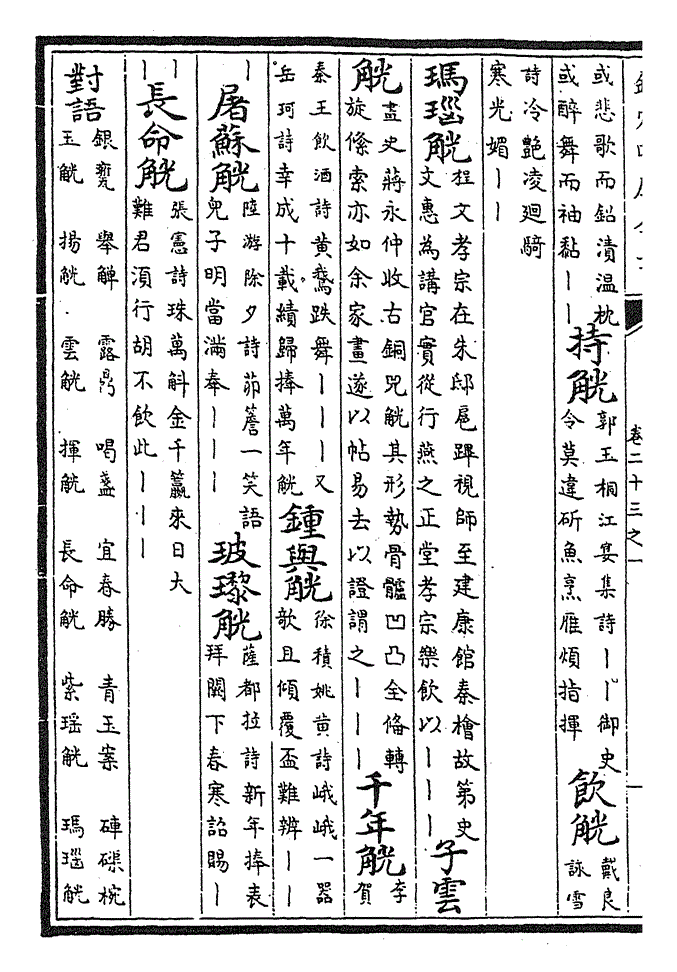 卷二十三之一
或悲歌而鉛漬溫枕
或醉舞而袖黏丨丨
持觥
郭玉桐江宴集詩丨丨御史
令莫違斫魚烹雁煩指揮
飲觥
戴良
詠雪
詩冷艷凌廻騎
寒光媚丨丨
瑪瑙觥
桯文孝宗在朱邸扈蹕視師至建康館秦檜故第史
文惠為講官實從行燕之正堂孝宗樂飲以丨丨丨
子雲
觥
畫史蔣永仲收古銅兕觥其形勢骨髓凹凸全俻轉
旋絛索亦如余家畫遂以帖易去以證謂之丨丨丨
千年觥
李
賀
秦王飲酒詩黃鵞跌舞丨丨丨又
岳珂詩幸成十載績歸捧萬年觥
鍾與觥
徐積姚黃詩峨峨一器
歌且傾覆盃難辨丨丨
丨
屠蘇觥
陸游除夕詩茆簷一笑語
兒子明當滿奉丨丨丨
玻瓈觥
薩都拉詩新年捧表
拜闕下春寒詔賜丨
丨丨
長命觥
張憲詩珠萬斛金千籯來日大
難君須行胡不飲此丨丨丨
對語
銀甕 舉觶 露鬵 喝盞 宜春勝 青玉案 硨磲椀
玉觥 揚觥 雲觥 揮觥 長命觥 紫瑶觥 瑪瑙觥